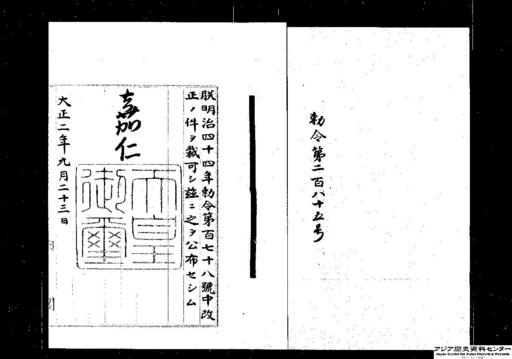 勅令第二百八十五号
朕明治四十四年勅令第百七十八號中改
正ノ件ヲ裁可シ茲ニ之ヲ公布セシム
嘉仁
天皇
御璽
大正二年九月二十三日
内閣
アジア歴史資料センター
Japan Center for Asian Historical Records